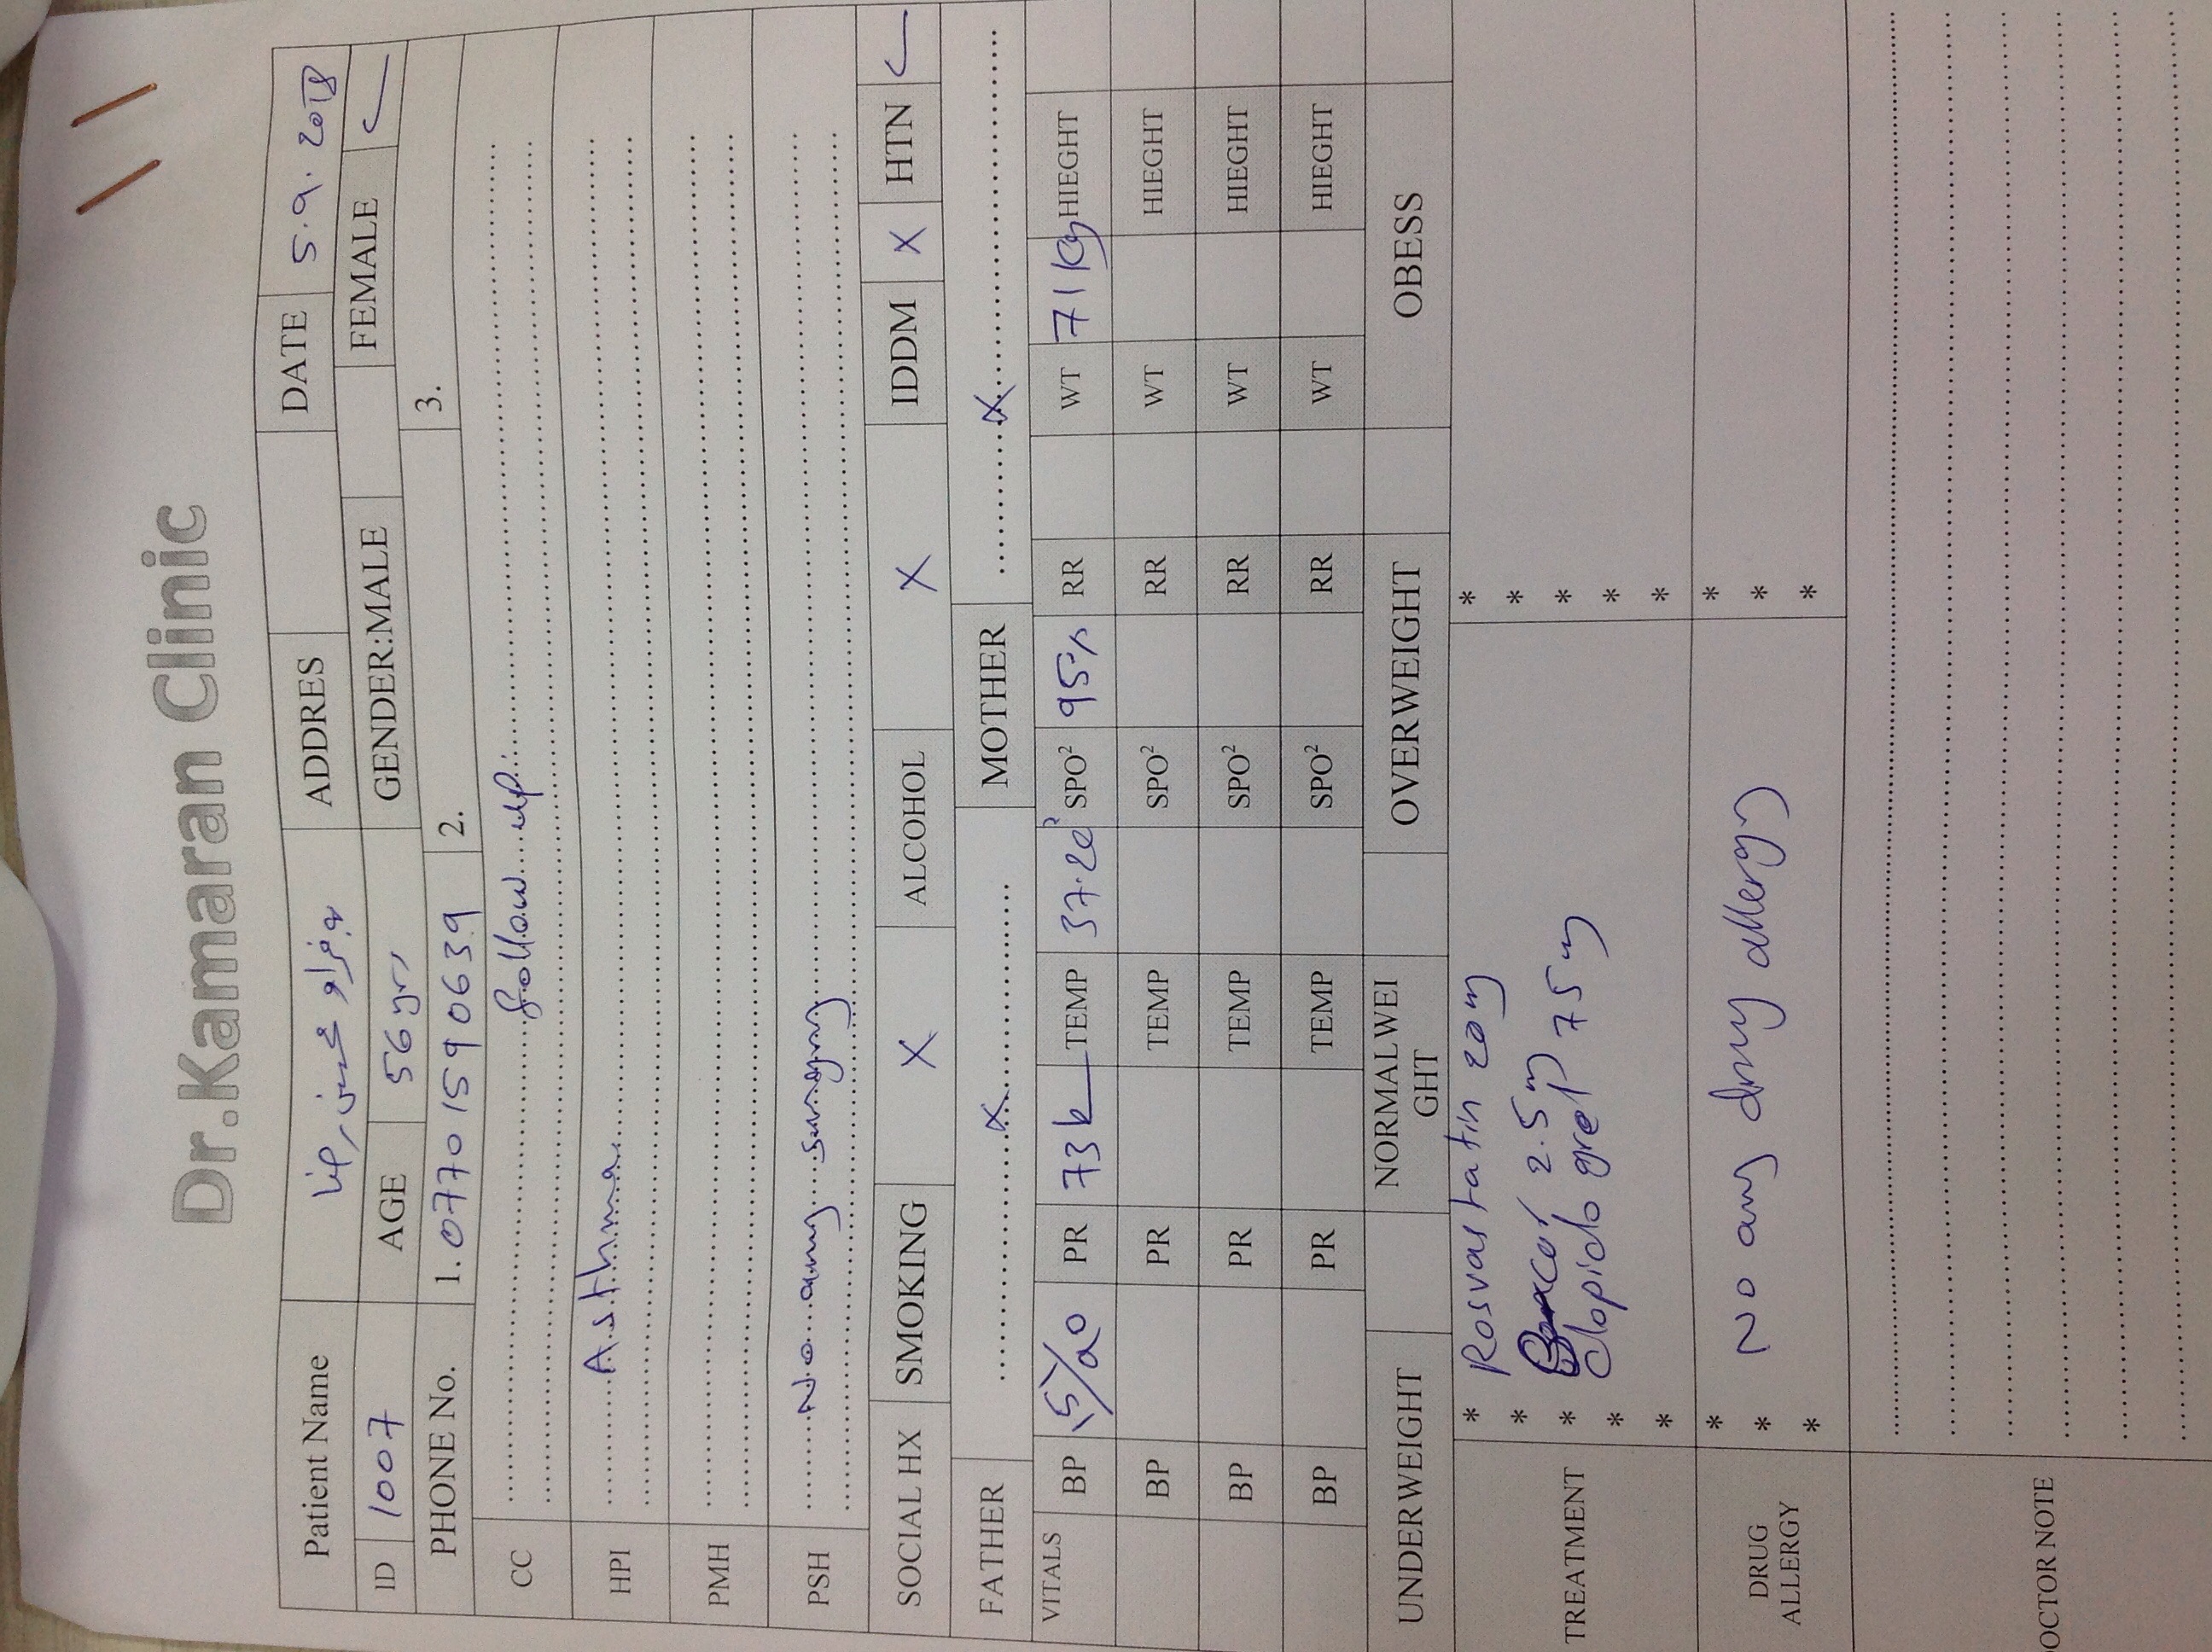 Dr.Kamaran Clinic
Patient Name بەفراو محسن رضا ADDRES DATE 5.9.2018
ID 1007 AGE 56 yrs GENDER:MALE FEMALE ✓
PHONE No. 1. 0770 159 0639 2. 3.
CC follow up
HPI Asthma
PMH
PSH No any surgery
SOCIAL HX SMOKING X ALCOHOL X IDDM X HTN ✓
FATHER X MOTHER X
VITALS BP PR 73 TEMP 37.2c° SPO² 95% RR WT 71 kg HIEGHT
BP PR TEMP SPO² RR WT HIEGHT
BP PR TEMP SPO² RR WT HIEGHT
BP PR TEMP SPO² RR WT HIEGHT
UNDERWEIGHT NORMALWEI OVERWEIGHT OBESS
GHT
TREATMENT
* Rosvastatin 20 mg *
* 2.5 mg *
* Clopidogrel 75 mg *
* *
* *
DRUG
ALLERGY
* No any drug allergy *
* *
* *
OCTOR NOTE